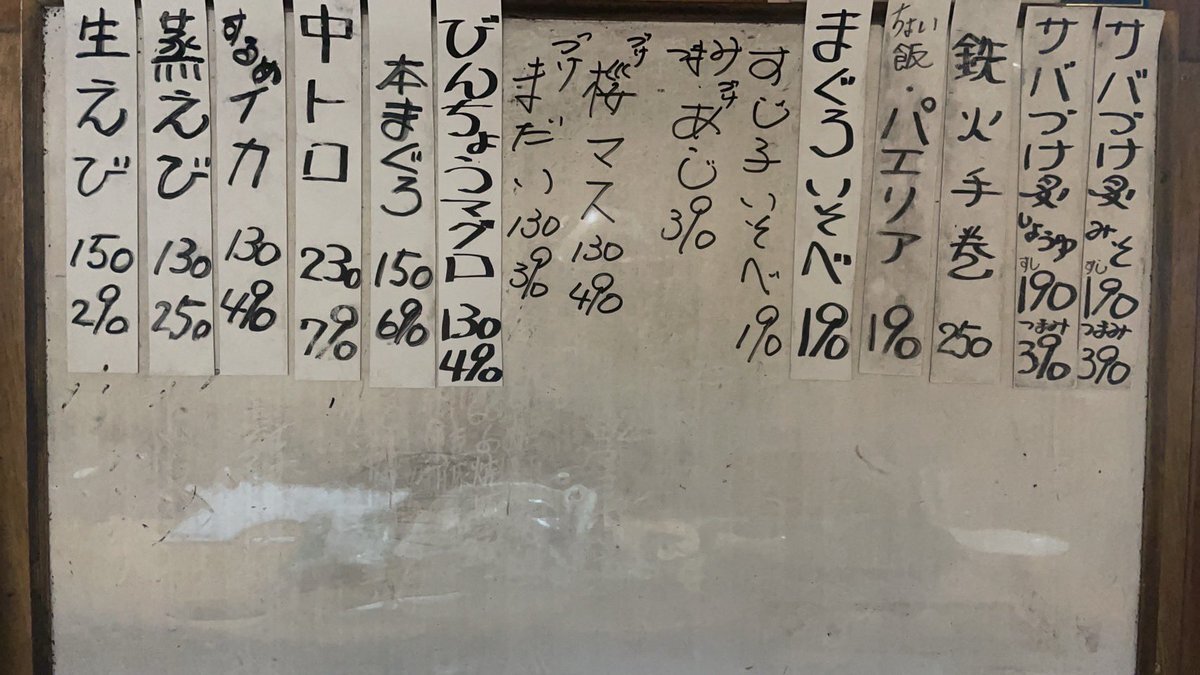 サバづけ炙みそ すし190 つまみ390
サバづけ炙しょうゆ すし190 つまみ390
鉄火手巻 250
ちょい飯・パエリア 190
まぐろいそべ 190
すじ子いそべ 190
みそづけあじ 390
づけ桜マス 130 490
づけまだい 130 390
びんちょうマグロ 130 490
本まぐろ 150 690
中トロ 230 790
するめイカ 130 490
蒸えび 130 250
生えび 150 290